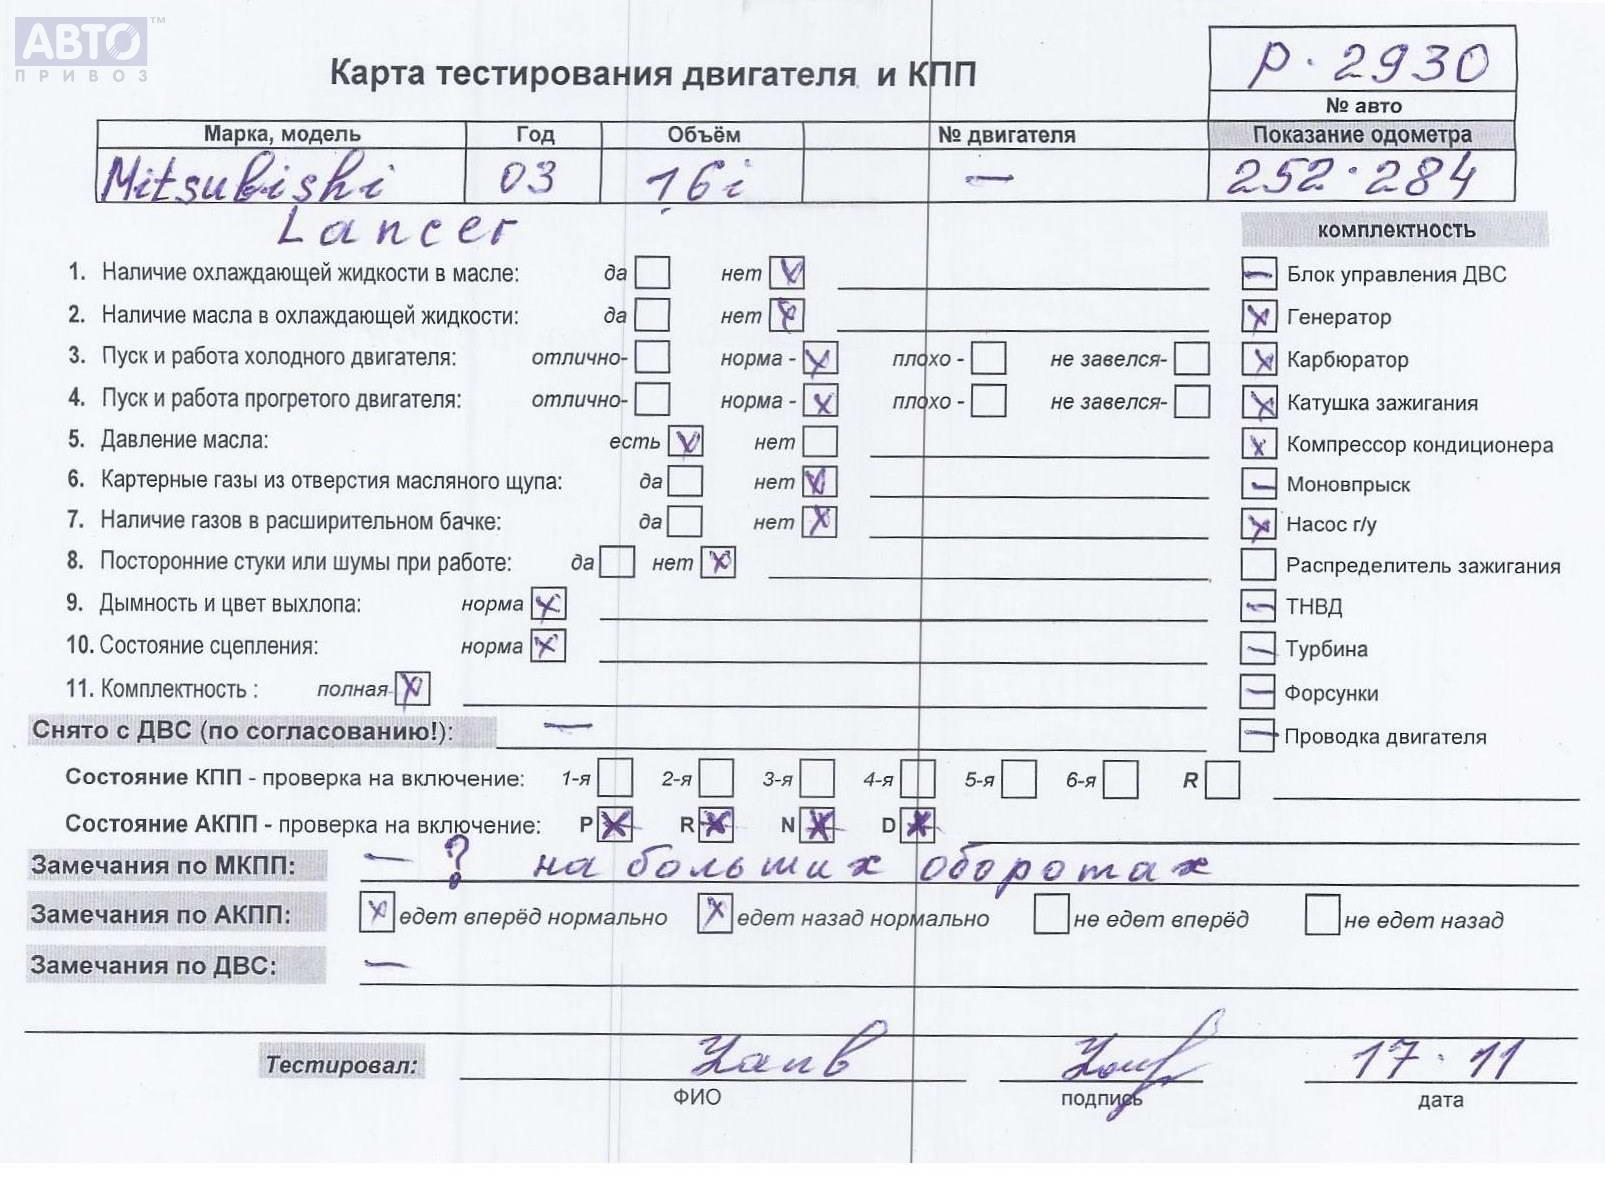 АВТО™
ПРИВОЗ
Карта тестирования двигателя и КПП
р. 2930
№ авто
Марка, модель Год Объём № двигателя Показание одометра
Mitsubishi 03 16i — 252.284
Lancer
комплектность
1. Наличие охлаждающей жидкости в масле: да нет
Блок управления ДВС
2. Наличие масла в охлаждающей жидкости: да нет
Генератор
3. Пуск и работа холодного двигателя: отлично- норма - плохо - не завелся-
Карбюратор
4. Пуск и работа прогретого двигателя: отлично- норма - плохо - не завелся-
Катушка зажигания
5. Давление масла: есть нет
Компрессор кондиционера
6. Картерные газы из отверстия масляного щупа: да нет
Моновпрыск
7. Наличие газов в расширительном бачке: да нет
Насос г/у
8. Посторонние стуки или шумы при работе: да нет
Распределитель зажигания
9. Дымность и цвет выхлопа: норма
ТНВД
10. Состояние сцепления: норма
Турбина
11. Комплектность : полная-
Форсунки
Снято с ДВС (по согласованию!): —
Проводка двигателя
Состояние КПП - проверка на включение: 1-я 2-я 3-я 4-я 5-я 6-я R
Состояние АКПП - проверка на включение: P R N D
Замечания по МКПП: — ? на больших оборотах
Замечания по АКПП: едет вперёд нормально едет назад нормально не едет вперёд не едет назад
Замечания по ДВС: —
Тестировал: 17.11
ФИО подпись дата